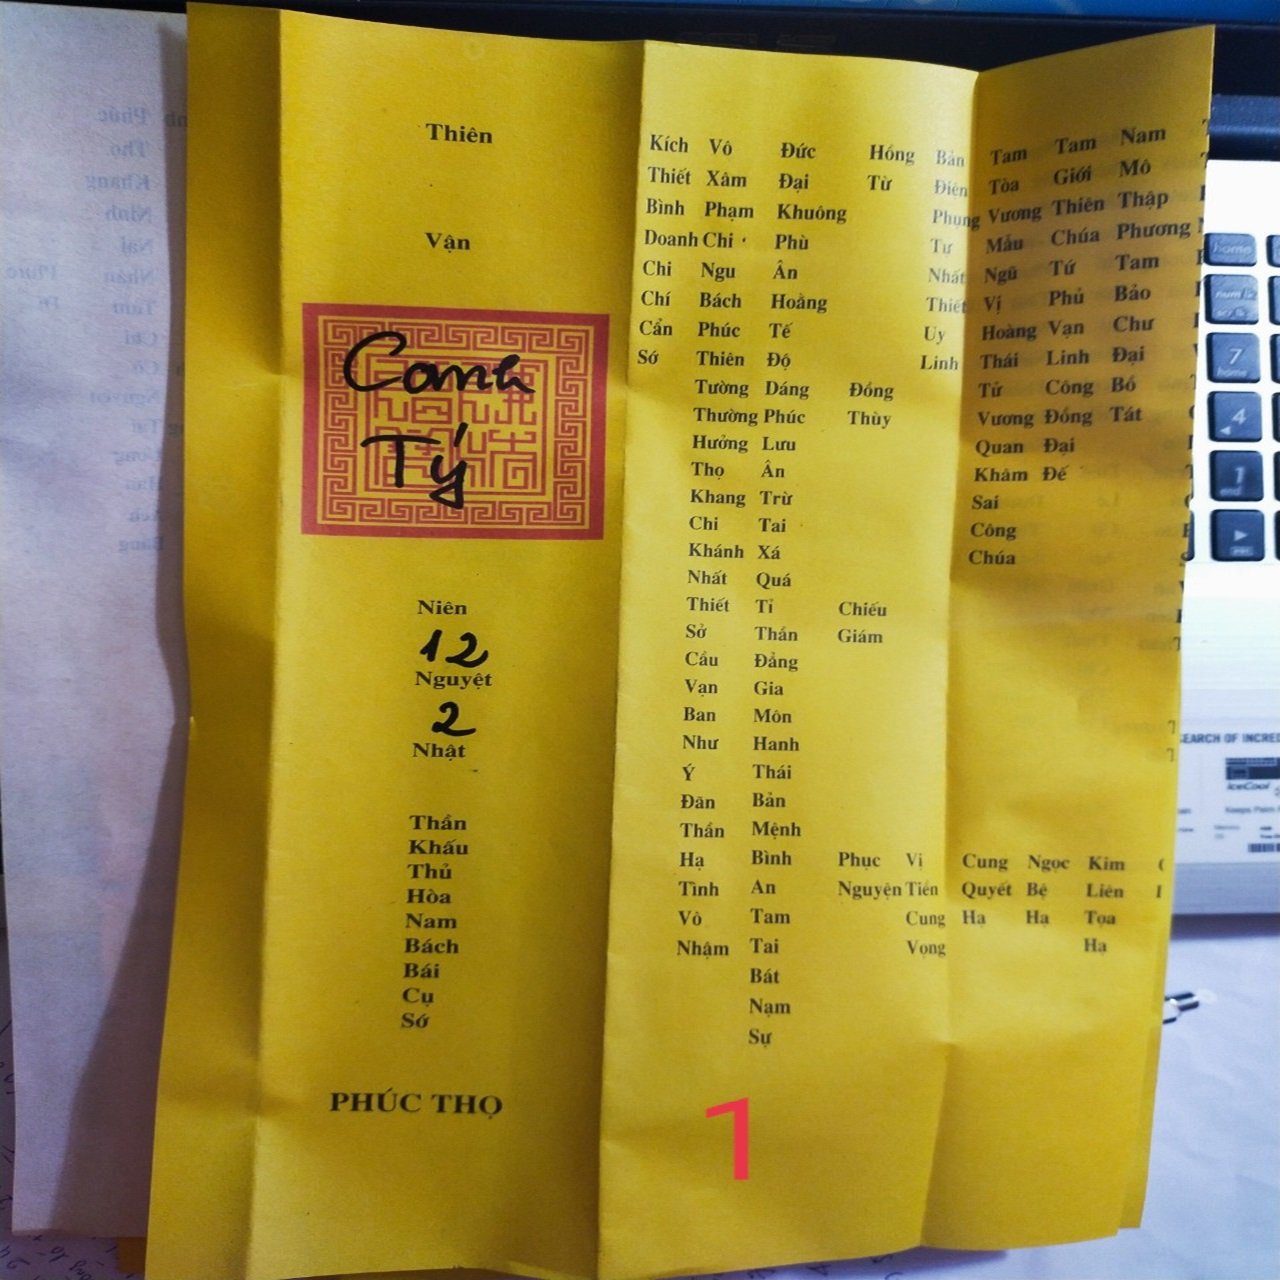 Nam Mô Thập Phương Tam Bảo Chư Đại Bồ Tát Kim Liên Tọa Hạ
Tam Giới Thiên Chúa Tứ Phủ Vạn Linh Công Đồng Đại Đế Ngọc Bệ Hạ
Tam Tòa Vương Mẫu Ngũ Vị Hoàng Thái Tử Vương Quan Khâm Sai Công Chúa Cung Quyết Hạ
Bản Điện Phụng Tự Nhất Thiết Uy Linh Vị Tiền Cung Vọng
Hồng Từ Đồng Thùy Chiếu Giám Phục Nguyện
Đức Đại Khuông Phù Ân Hoằng Tế Độ Dáng Phúc Lưu Ân Trừ Tai Xá Quá Tỉ Thần Đẳng Gia Môn Hanh Thái Bản Mệnh Bình An Tam Tai Bát Nạm Sự
Vô Xâm Phạm Chi Ngu Bách Phúc Thiên Tường Thường Hưởng Thọ Khang Chi Khánh Nhất Thiết Sở Cầu Vạn Ban Như Ý Đãn Thần Hạ Tình Vô Nhậm
Kích Thiết Bình Doanh Chi Chí Cẩn Sớ
Thiên Vận Canh Tý Niên 12 Nguyệt 2 Nhật
Thần Khấu Thủ Hòa Nam Bách Bái Cụ Sớ
PHÚC THỌ
1